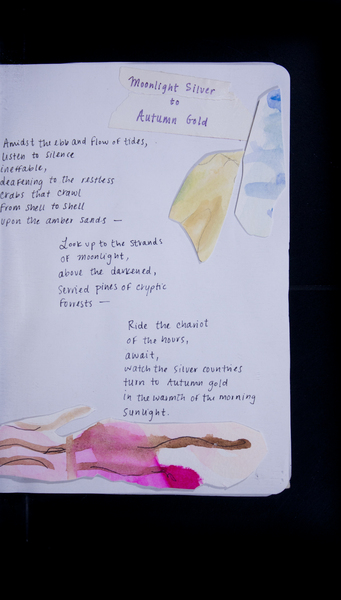 Moonlight Silver
to
Autumn Gold
Amidst the ebb and flow of tides,
listen to silence
ineffable,
deafening to the restless
crabs that crawl
from shell to shell
upon the amber sands —
Look up to the strands
of moonlight,
above the darkened,
serried pines of cryptic
forrests —
Ride the chariot
of the hours,
await,
watch the silver countries
turn to Autumn gold
in the warmth of the morning
sunlight.